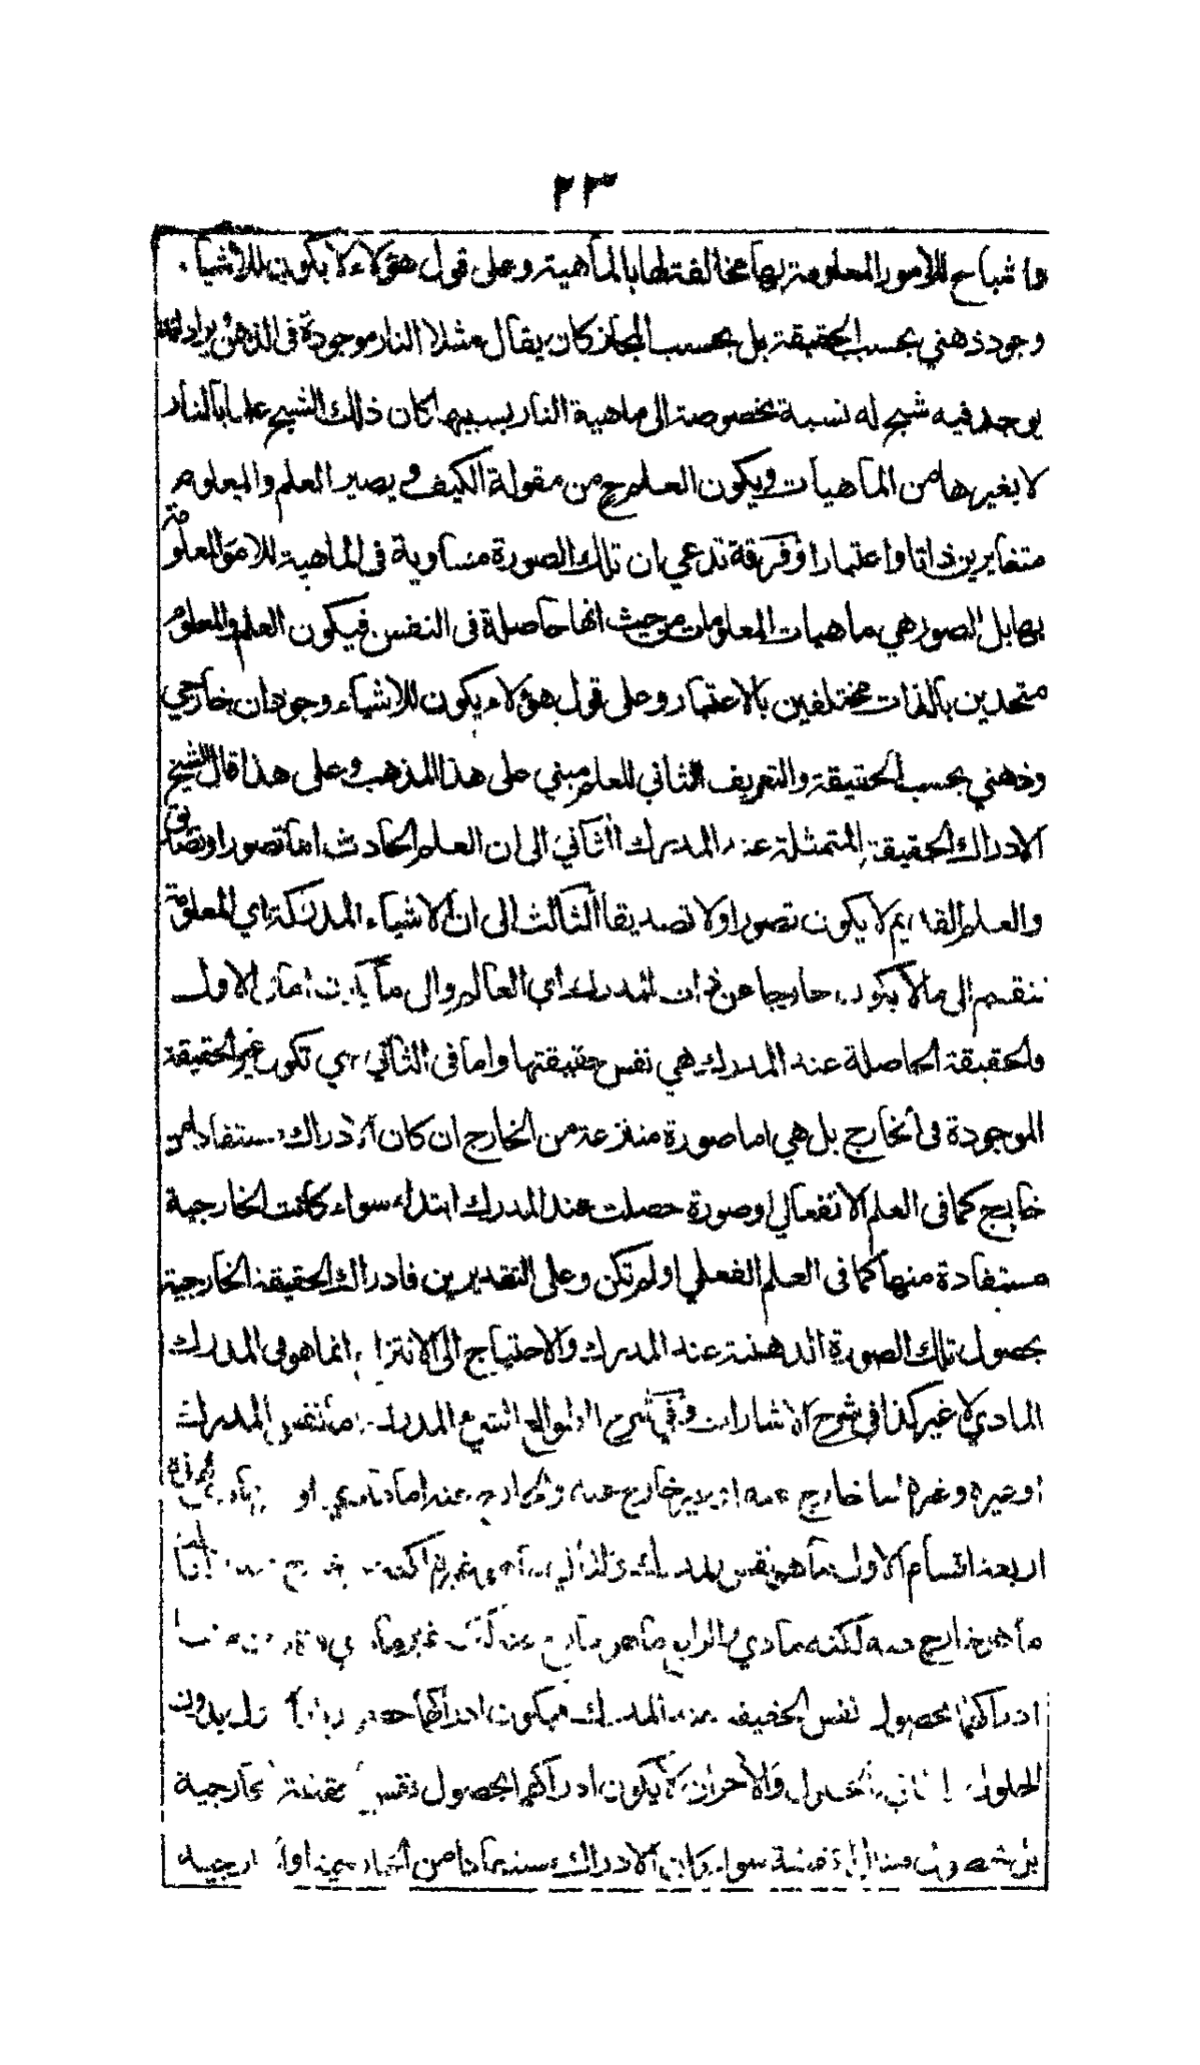 ٢٣
واشباح للامور المعلومة بها مخالفة لها بالماهية وعلى قول هؤلاء لا يكون للاشياء
وجود ذهني بحسب الحقيقة بل بحسب المجاز كان يقال مثلا النار موجودة في الذهن ويراد انه
يوجد فيه شبح له نسبة مخصوصة الى ماهية النار بسببها كان ذلك الشبح علما بالنار
لا بغيرها من الماهيات ويكون العلم ح من مقولة الكيف ويصير العلم والمعلوم
متغايرين ذاتا واعتبارا وفرقة تدعي ان تلك الصورة مساوية في الماهية للامور المعلومة
بها بل الصور هي ماهيات المعلومات من حيث انها حاصلة في النفس فيكون العلم والمعلوم
متحدين بالذات مختلفين بالاعتبار وعلى قول هؤلاء يكون للاشياء وجودان خارجي
وذهني بحسب الحقيقة والتعريف الثاني للعلم مبني على هذا المذهب وعلى هذا قال الشيخ
الادراك الحقيقة المتمثلة عند المدرك الثاني الى ان العلم الحادث اما تصور او تصديق
والعلم القديم لا يكون تصورا ولا تصديقا الثالث الى ان الاشياء المدركة اي المعلومة
تنقسم الى ما لا يكون خارجا عن ذات المدرك اي العالم والى ما يكون اما في الاول
فالحقيقة الحاصلة عند المدرك هي نفس حقيقتها واما في الثاني فهي تكون غير الحقيقة
الموجودة في الخارج بل هي اما صورة منتزعة من الخارج ان كان الادراك مستفادا من
خارج كما في العلم الانفعالي او صورة حصلت عند المدرك ابتداء سواء كانت الخارجية
مستفادة منها كما في العلم الفعلي او لم تكن وعلى التقديرين فادراك الحقيقة الخارجية
بحصول تلك الصورة الذهنية عند المدرك والاحتياج الى الانتزاع انما هو في المدرك
المادي لا غير كذا في شرح الاشارات وفي شرح الطوالع الشيء المدرك اما نفس المدرك
او غيره وغيره اما خارج عنه او غير خارج عنه والخارج عنه اما مادي او
اربعة اقسام الاول ما هو نفس المدرك والثاني
ما هو خارج عنه لكنه مادي والرابع ما هو خارج عنه لكنه غير مادي
ادراكهما بحصول نفس الحقيقة عند المدرك فيكون ادراكهما حضوريا بدون
الحلول والاخران لا يكون ادراكهما بحصول نفس الحقيقة الخارجية
بل بحصول سواء كان الادراك مستفادا من الخارجية او الخارجية